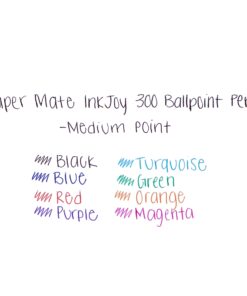 aper Mate InkJoy 300 Ballpoint Pen
-Medium Point
Black
Blue
Red
Purple
Turquoise
Green
Orange
Magenta